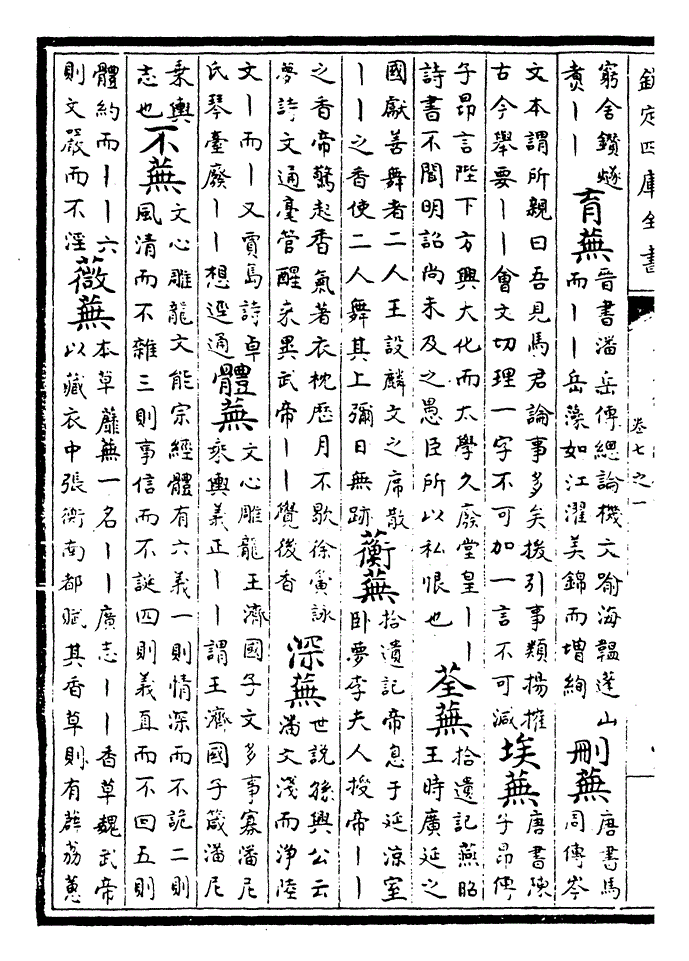 欽定四庫全書
卷七之一
窮舍鑽燧
煑丨丨
育蕪
晉書潘岳傳總論機文喻海韞蓬山
而丨丨岳藻如江濯美錦而增絢
刪蕪
唐書馬
周傳岑
文本謂所親曰吾見馬君論事多矣援引事類揚搉
古今舉要丨丨會文切理一字不可加一言不可減
埃蕪
唐書陳
子昂傳
子昂言陛下方興大化而太學久廢堂皇丨丨
詩書不聞明詔尚未及之愚臣所以私恨也
荃蕪
拾遺記燕昭
王時廣延之
國獻善舞者二人王設麟文之席散
丨丨之香使二人舞其上彌日無跡
蘅蕪
拾遺記帝息于延凉室
卧夢李夫人授帝丨丨
之香帝驚起香氣著衣枕歷月不歇徐夤詠
夢詩文通毫管醒來異武帝丨丨覺後香
深蕪
世說孫興公云
潘文淺而浄陸
文丨而丨又賈島詩卓
氏琴臺廢丨丨想逕通
體蕪
文心雕龍王濟國子文多事寡潘尼
乘輿義正丨丨謂王濟國子箴潘尼
乘輿
志也
不蕪
文心雕龍文能宗經體有六義一則情深而不詭二則
風清而不雜三則事信而不誕四則義直而不回五則
體約而丨丨六
則文嚴而不淫
薇蕪
本草蘼蕪一名丨丨廣志丨丨香草魏武帝
以藏衣中張衡南都賦其香草則有薜荔蕙